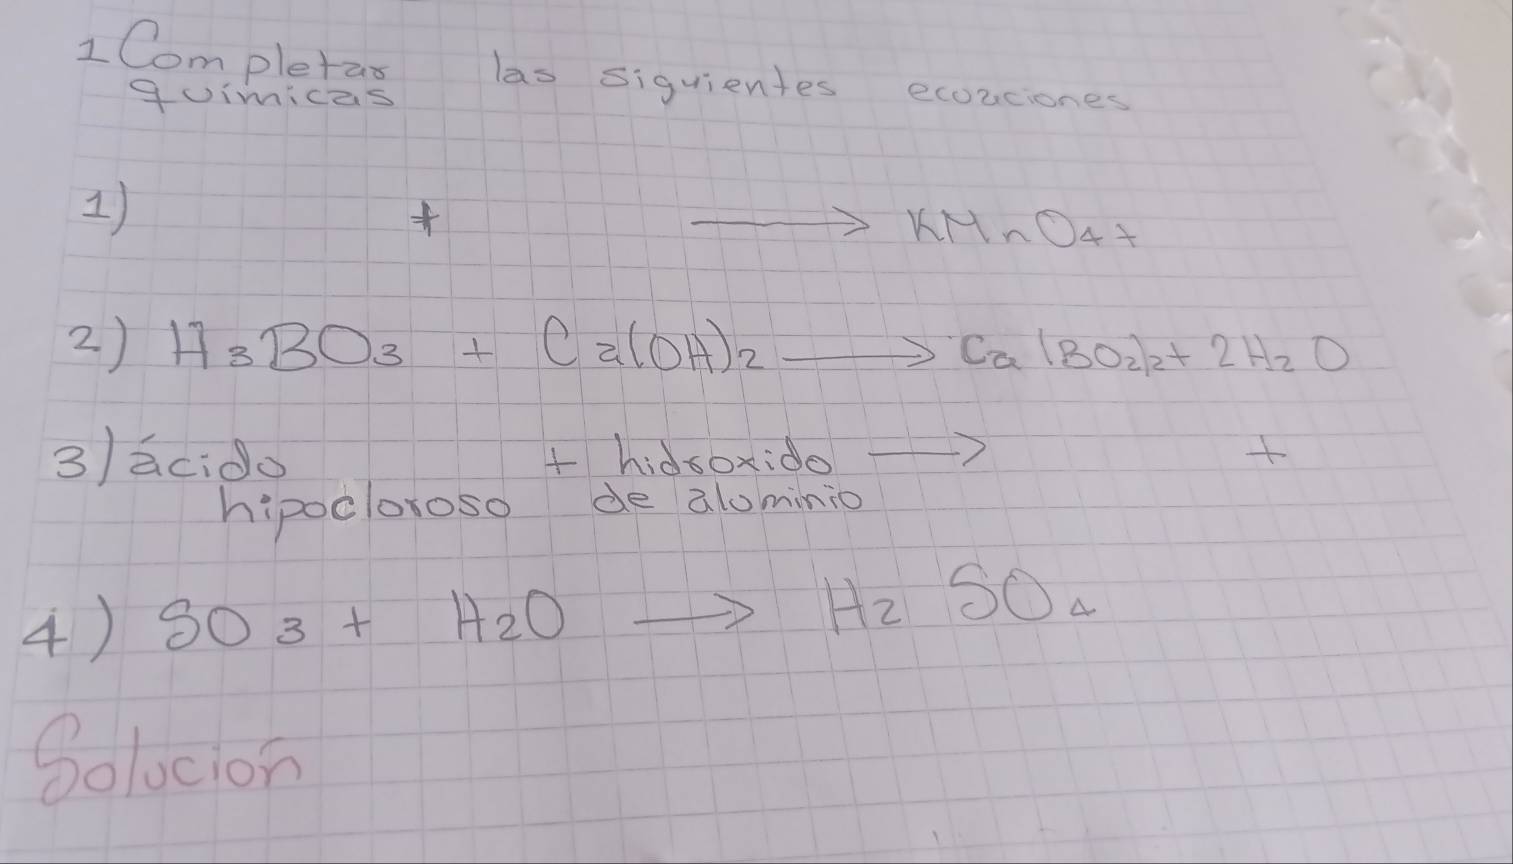 1 Completar las siguientes ecuaciones
químicas
1) + → KMnO4 +
2) H3BO3 + Ca(OH)2 → Ca(BO2)2 + 2H2O
3) ácido + hidroxido → +
hipocloroso de aluminio
4) SO3 + H2O → H2SO4
Solución